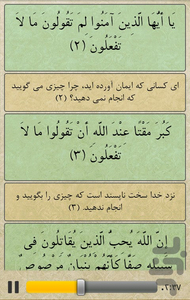 يَا أَيُّهَا الَّذِينَ آمَنُوا لِمَ تَقُولُونَ مَا لَا
تَفْعَلُونَ (٢)
ای کسانی که ایمان آورده اید، چرا چیزی می گویید
که انجام نمی دهید؟ (٢)
كَبُرَ مَقْتًا عِنْدَ اللَّهِ أَنْ تَقُولُوا مَا لَا
تَفْعَلُونَ (٣)
نزد خدا سخت ناپسند است که چیزی را بگویید و
انجام ندهید. (٣)
إِنَّ اللَّهَ يُحِبُّ الَّذِينَ يُقَاتِلُونَ فِي
سَبِيلِهِ صَفًّا كَأَنَّهُمْ بُنْيَانٌ مَرْصُوصٌ